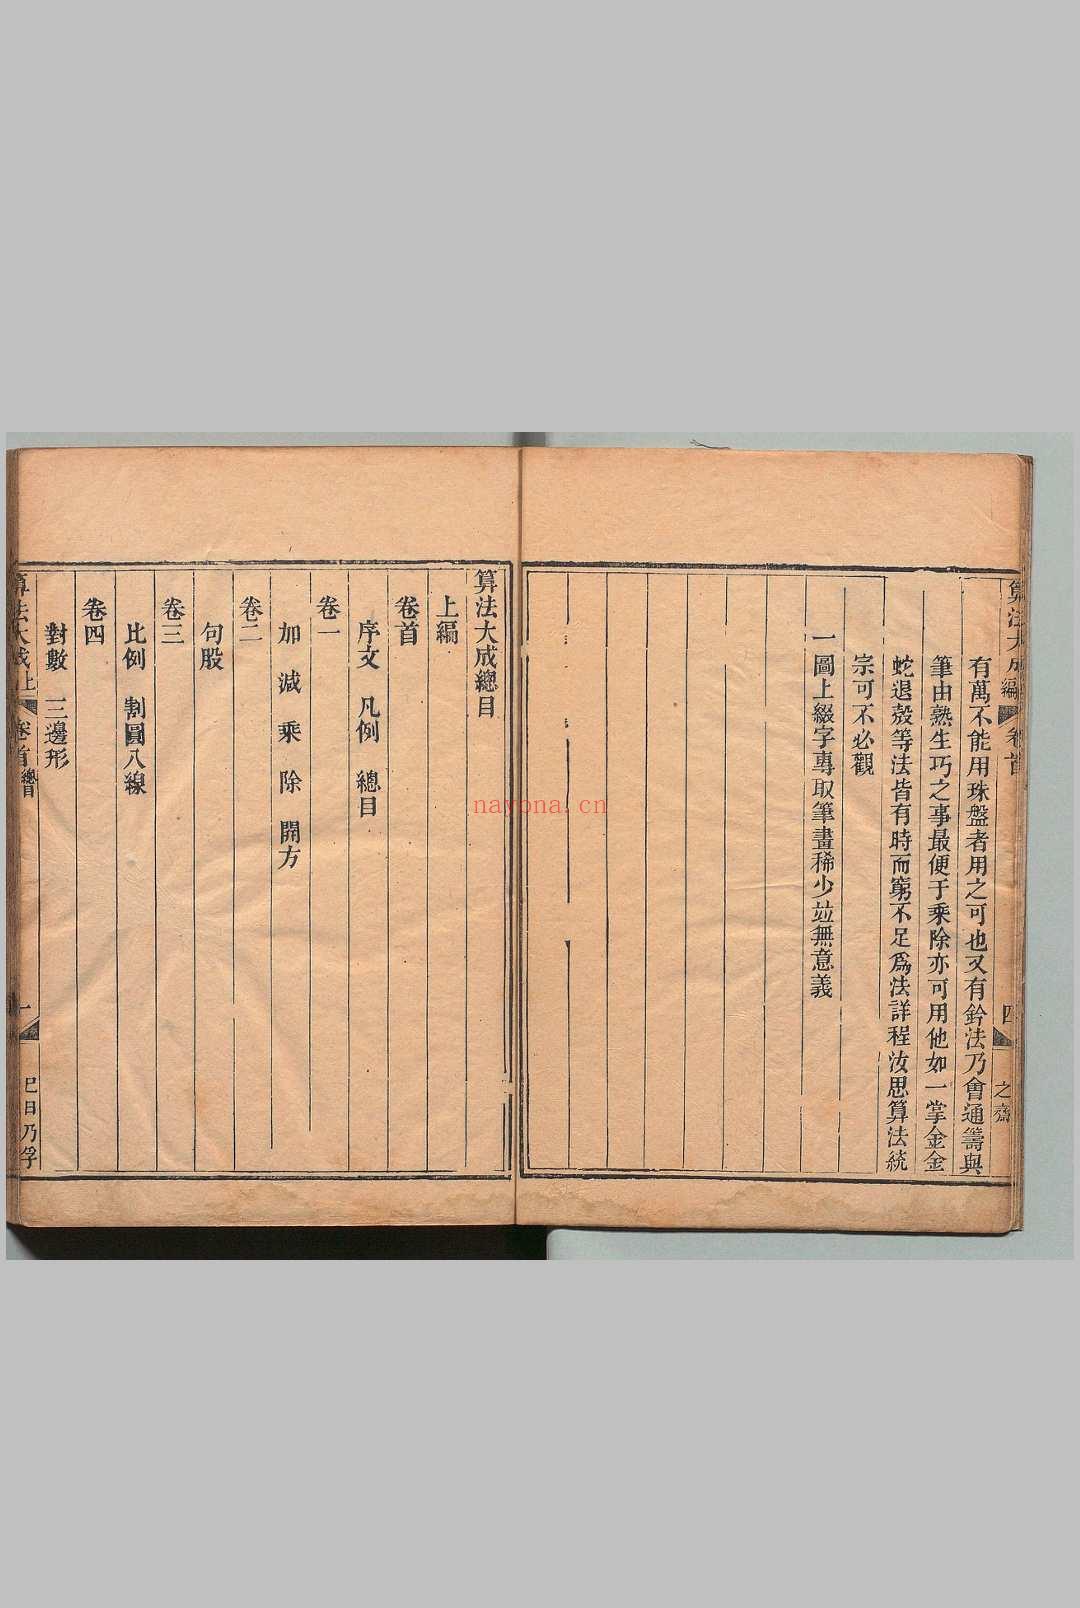 算法大成上編 卷首 四 之齋
有萬不能用珠盤者用之可也又有鈐法乃會通籌與
筆由熟生巧之事最便于乘除亦可用他如一掌金金
蛇退殼等法皆有時而窮不足爲法詳程汝思算法統
宗可不必觀
一圖上綴字專取筆畫稀少並無意義
算法大成總目
上編
卷首
序文 凡例 總目
卷一
加 減 乘 除 開方
卷二
句股
卷三
比例 割圓八線
卷四
對數 三邊形
算法大成上 卷首 總目 一 巳日乃孚
nayona.cn